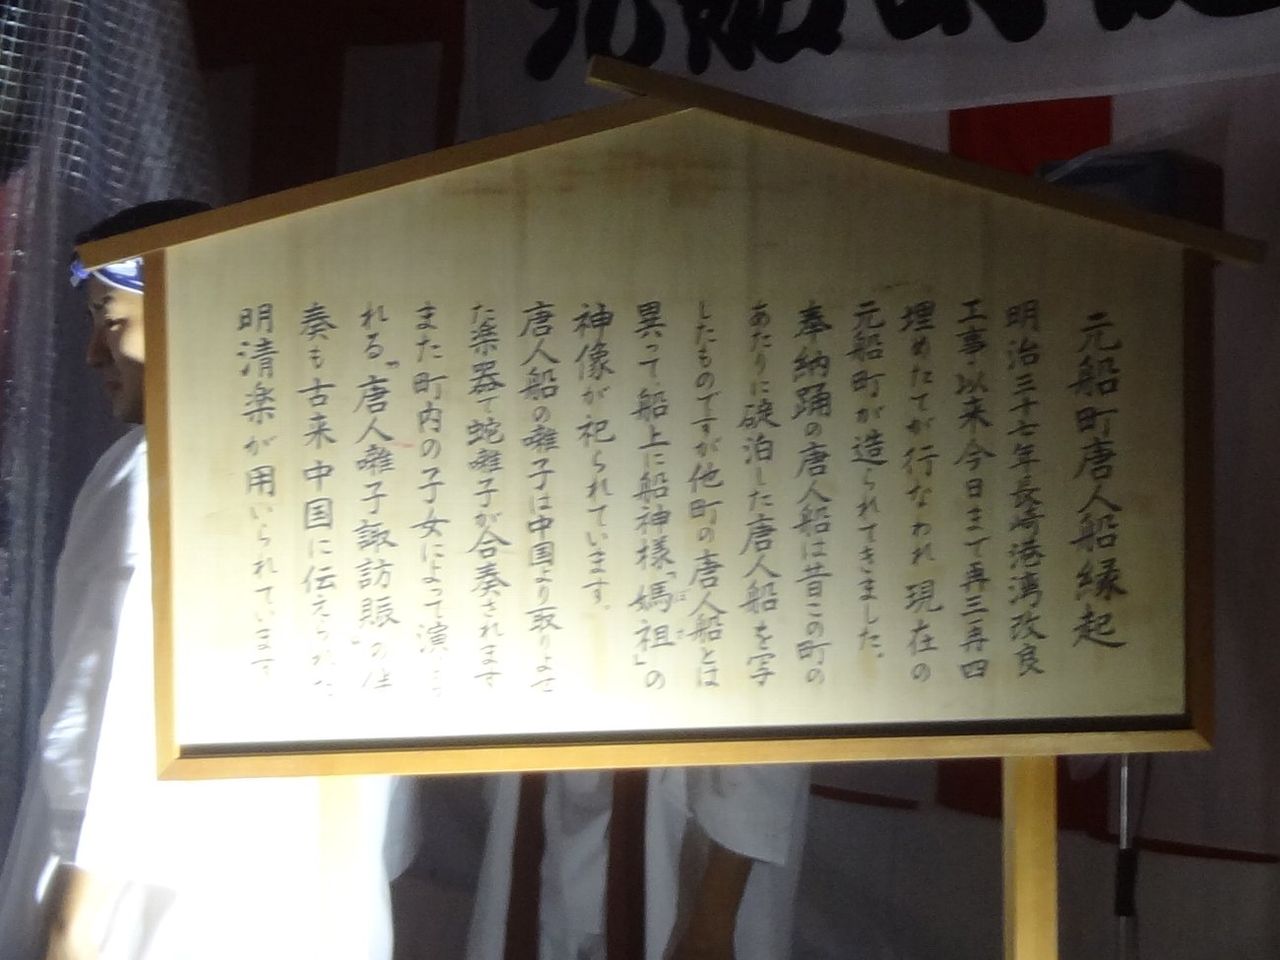 元船町唐人船縁起
明治三十七年長崎港湾改良
工事以来今日まで再三再四
埋めたてが行なわれ現在の
元船町が造られてきました。
奉納踊の唐人船は昔この町の
あたりに碇泊した唐人船を写
したものですが他町の唐人船とは
異って、船上に船神様「媽祖」の
神像が祀られています。
唐人船の囃子は中国より取りよせ
た楽器で蛇囃子が合奏されます
また町内の子女によって演
れる「唐人囃子諏訪賑」の
奏も古来中国に伝えられた
明清楽が用いられています
元船町